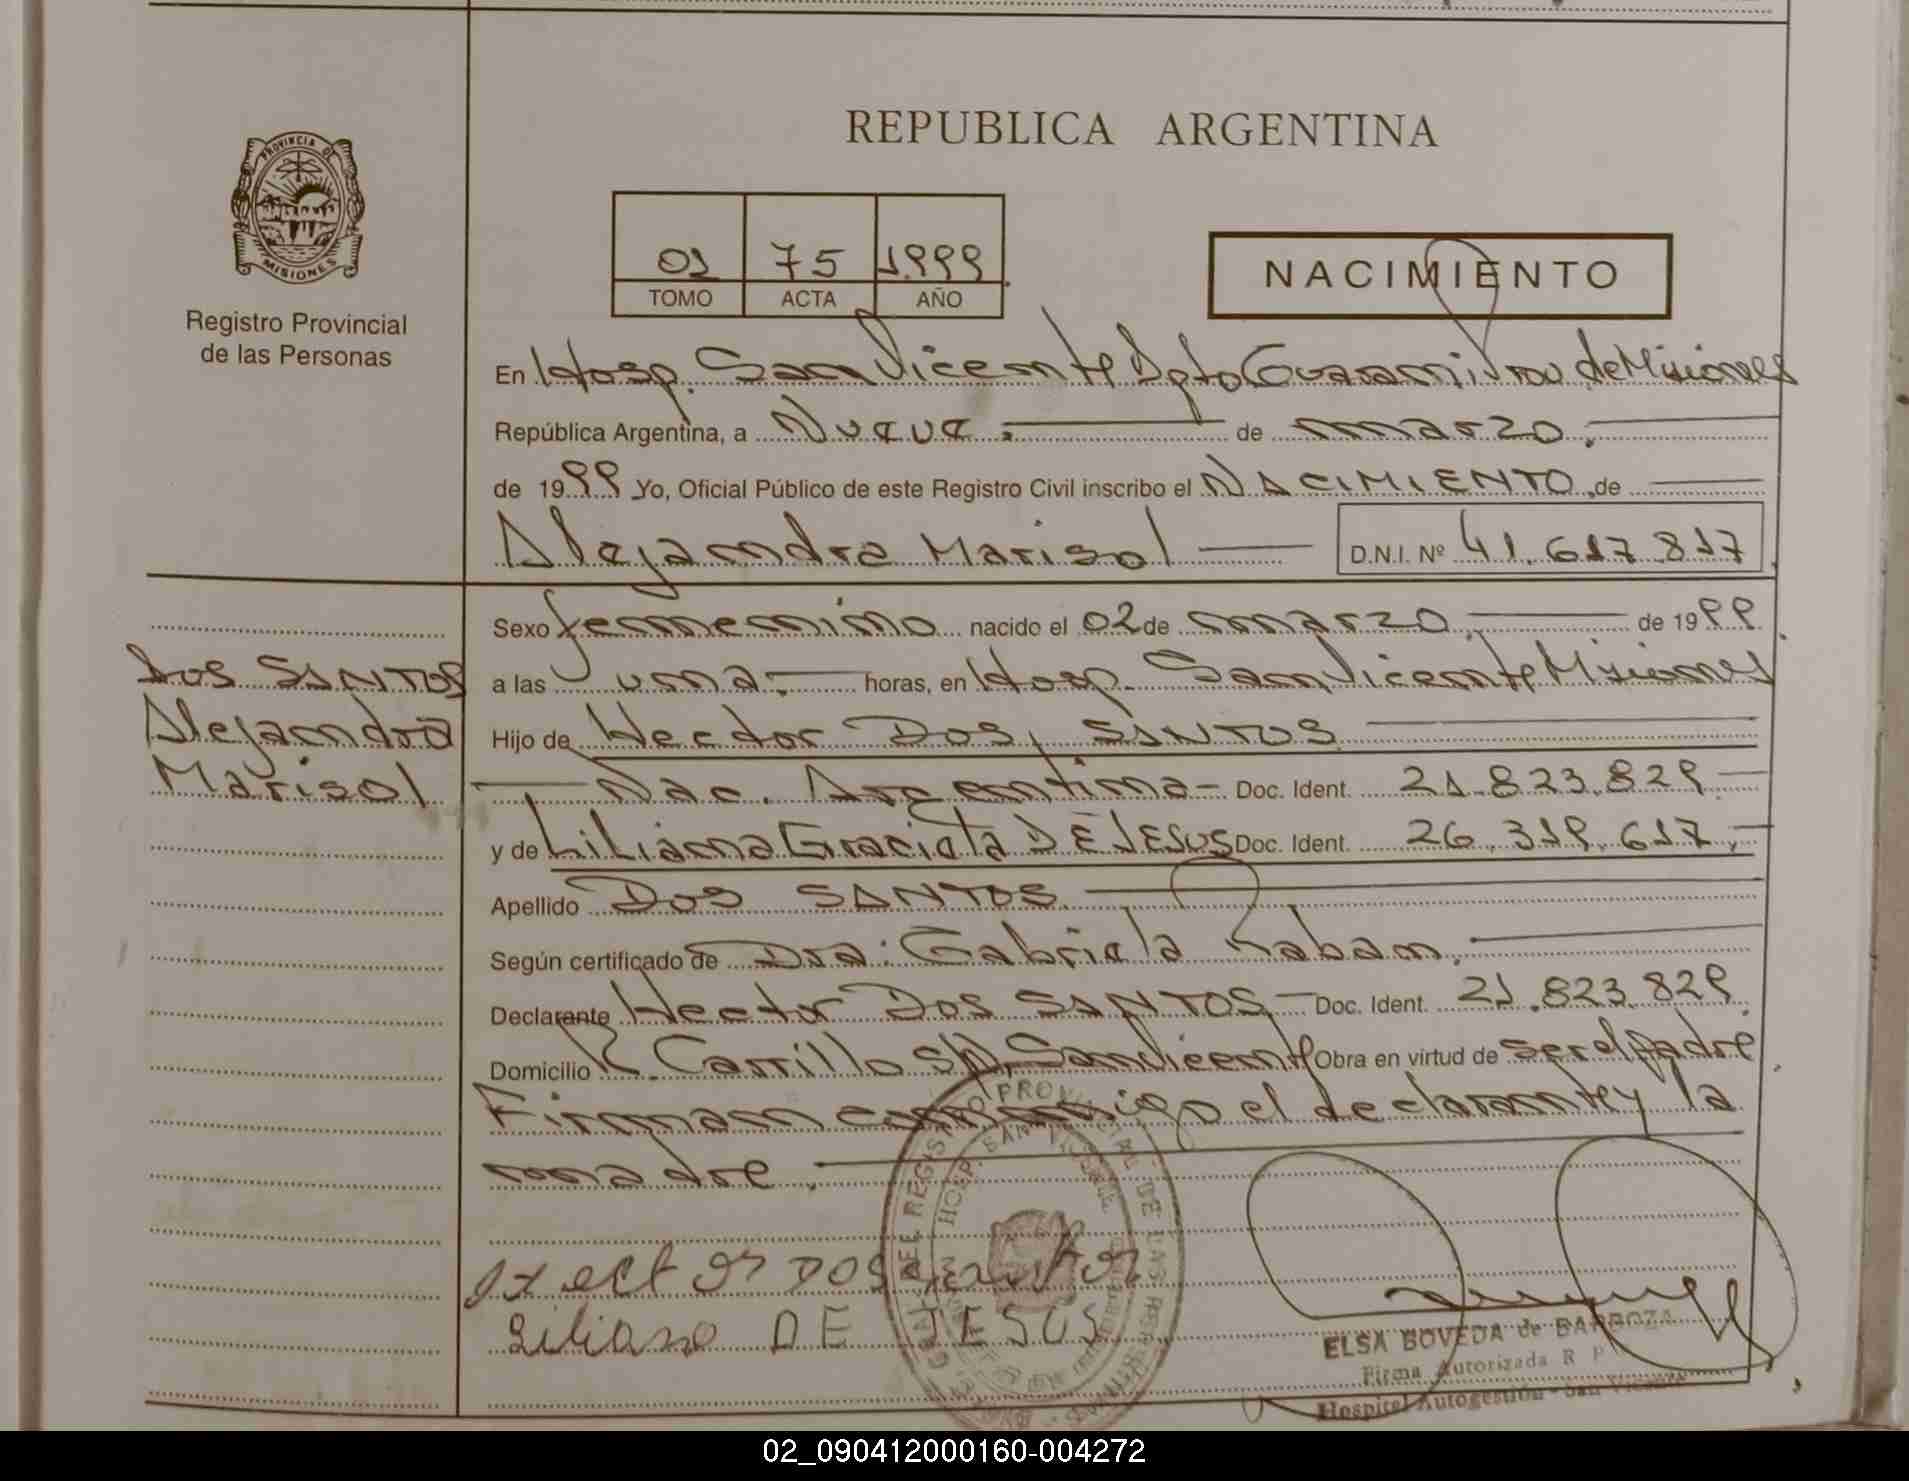 REPUBLICA ARGENTINA
PROVINCIA DE
MISIONES
Registro Provincial
de las Personas
01 75 1999
TOMO ACTA AÑO
NACIMIENTO
En Hosp. San Vicente Dpto Guaraní Prov de Misiones
República Argentina, a Nueve.- de marzo.
de 1999 Yo, Oficial Público de este Registro Civil inscribo el NACIMIENTO, de
Alejandra Marisol D.N.I. Nº 41.617.817
Sexo femenino nacido el 02 de marzo. de 1999.
DOS SANTOS
Alejandra
Marisol
a las una.- horas, en Hosp. San Vicente Misiones
Hijo de Hector DOS SANTOS
Nac. Argentina- Doc. Ident. 21.823.829
y de Liliana Graciela DE JESUS Doc. Ident. 26.319.617.-
Apellido DOS SANTOS
Según certificado de Dra: Gabriela
Declarante Hector DOS SANTOS- Doc. Ident. 21.823.829
Domicilio R. Carrillo S/N San Vicente Obra en virtud de ser el padre
Firman conmigo el declarante y la
madre.
DOS
Liliana DE JESUS
REGISTRO PROVINCIAL DE LAS PERSONAS
HOSP. SAN VICENTE
ELSA BOVEDA de BARBOZA
Firma Autorizada R P
Hospital Autogestión - San Vicente
02_090412000160-004272